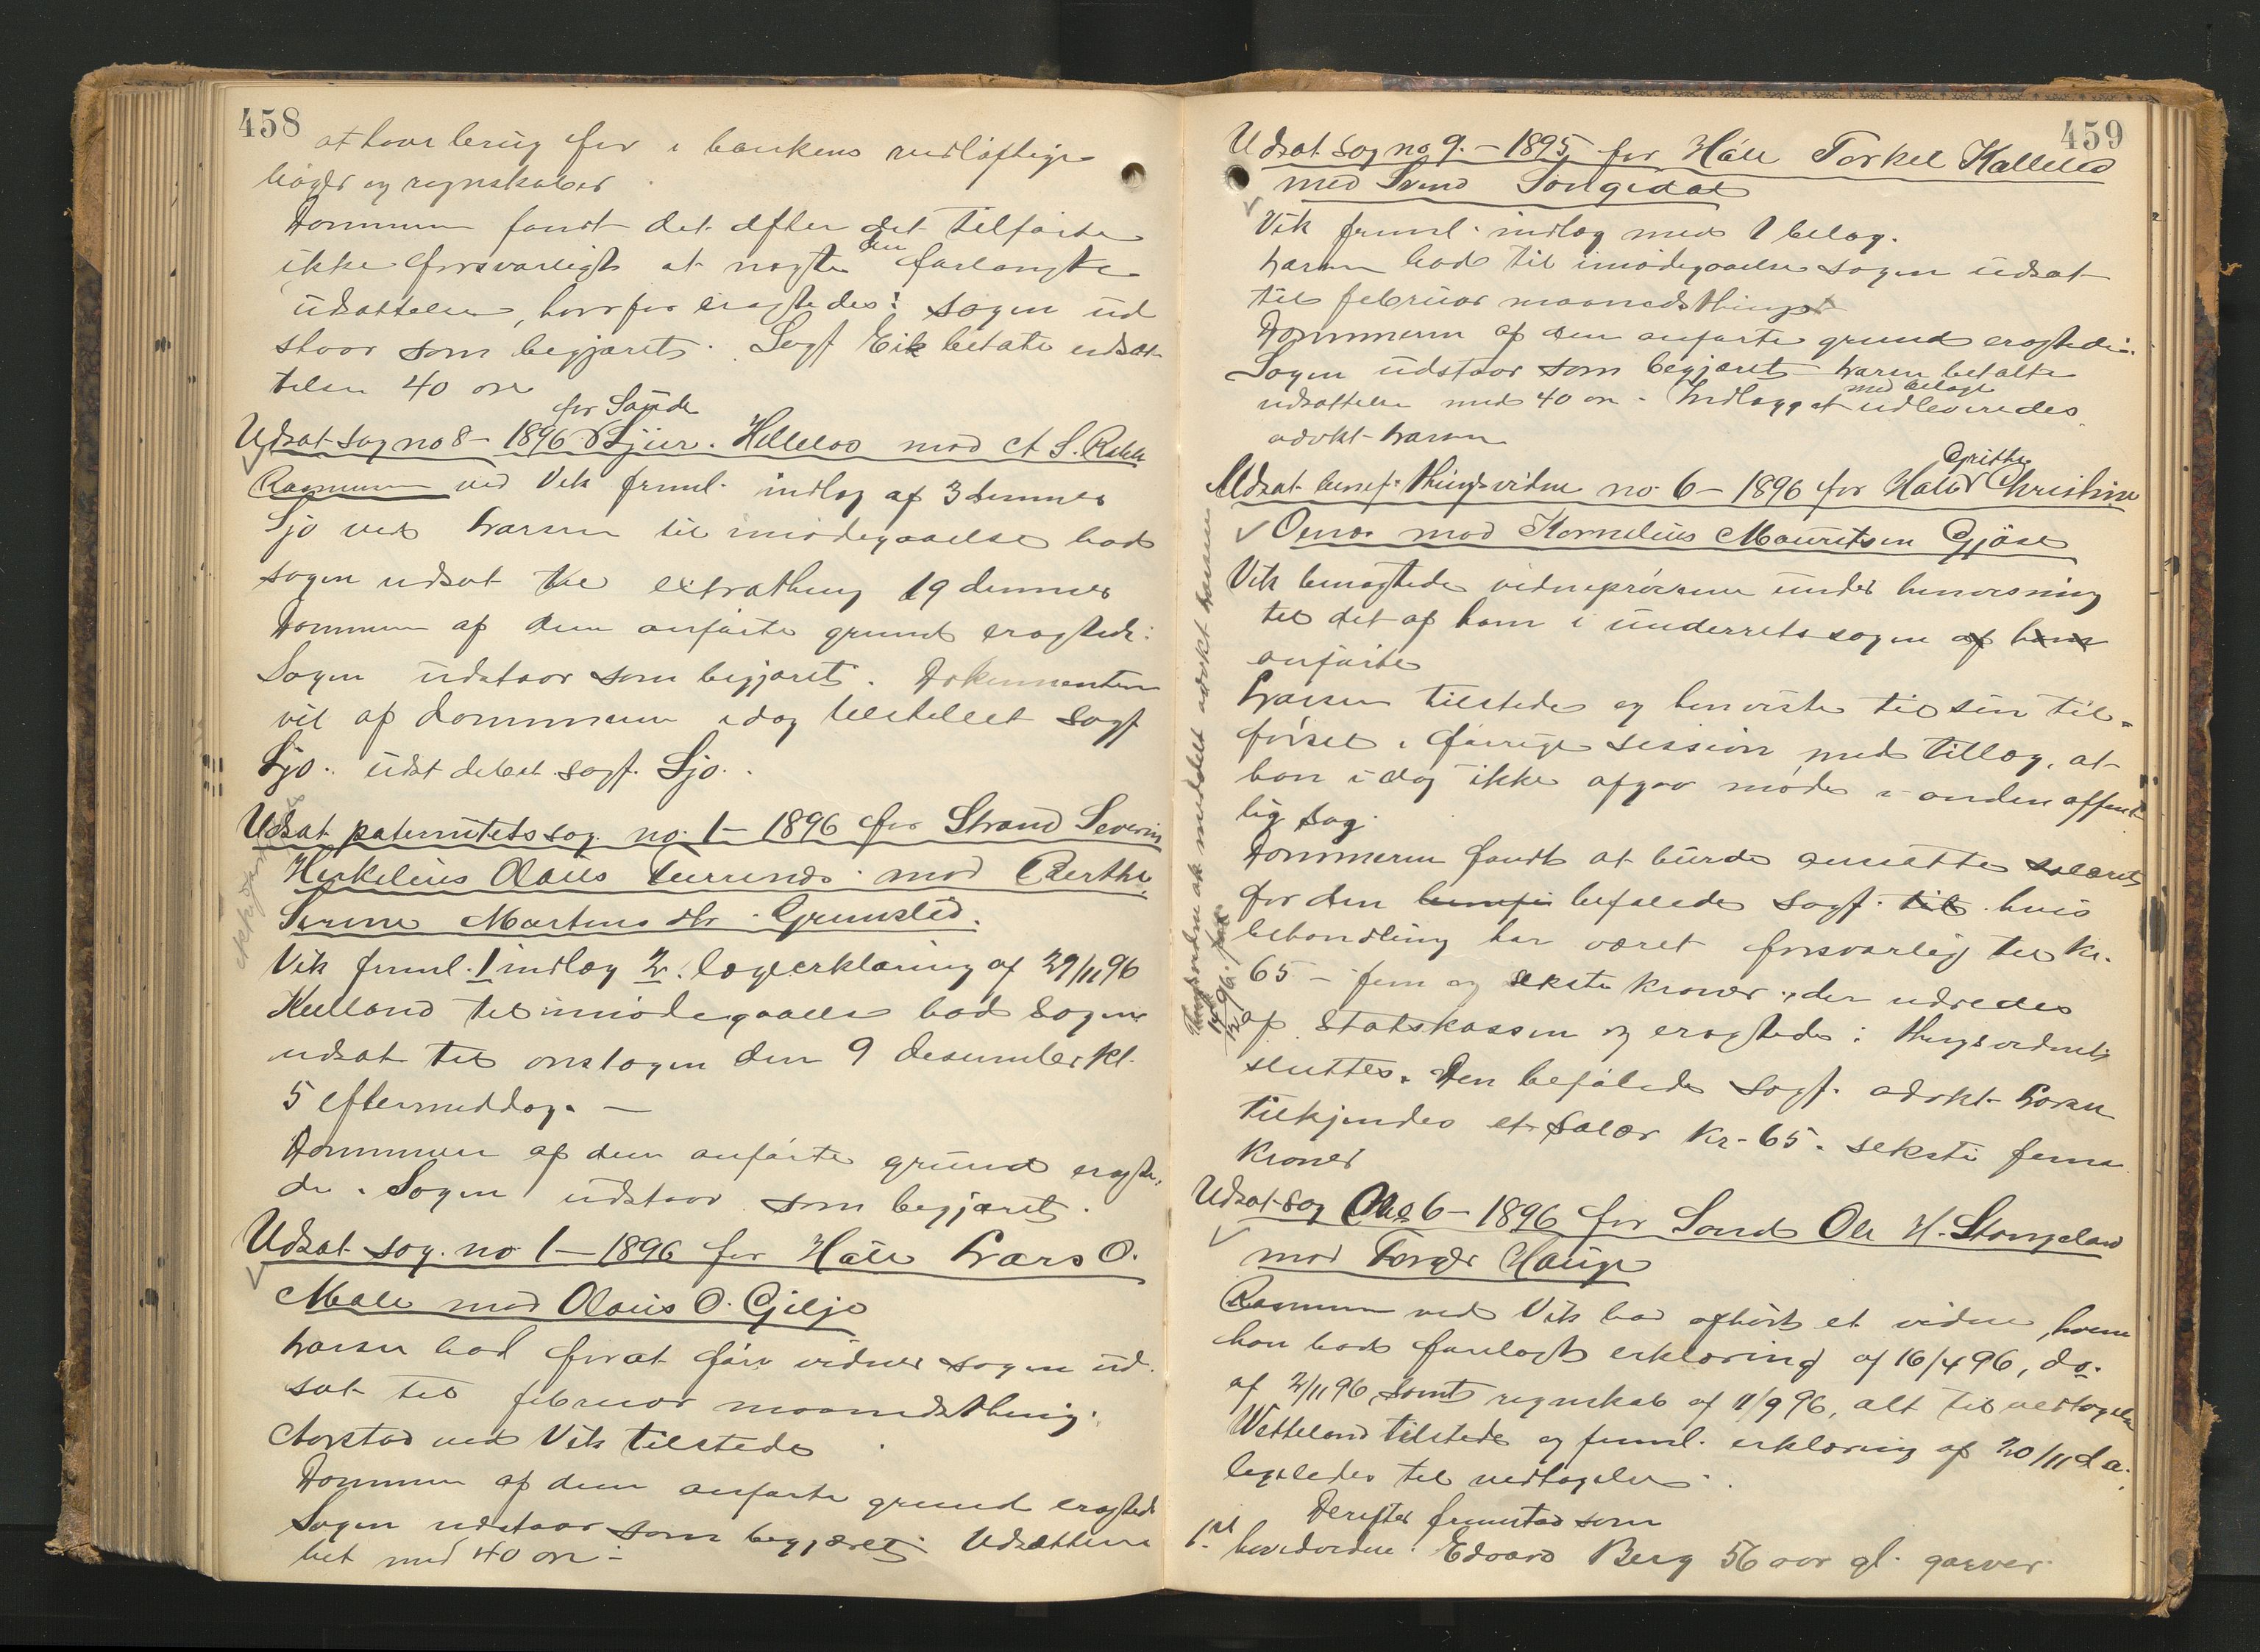 458
at have brug for i bankens vidløftige
bøger og regnskaber.
Dommeren fandt det efter det tilførte
ikke forsvarligt at nægte den forlangte
udsættelse, hvorfor eragtedes: Sagen ud
staar som begjæret. Sagf Eik betalte udsæt
telsen 40 øre
for Sande
Udsat sag no 8 – 1896 Hilleloo mod A S. Rakk
Rasmussen ved Vik freml. indlæg af 3 dennes
Sjo ved Larsen til imødegaaelse bad
sagen udsat til extrathing 19 dennes
Dommeren af den anførte grund eragtede:
Sagen udstaar som begjæret. Dokumenterne
vil af dommeren idag tilstillet sagf
Sjo. udst debet sagf. Sjo.
Udsat paternitetssag no. 1 – 1896 for Strand Severin
Olaus mod Berthe
Serine Martinsdtr Grimslid.
Vik freml. 1 indlæg 2. lægeerklæring af 27/11 96
Kielland til imødegaaelse bad sagen
udsat til onstagen den 9 desember kl.
5 eftermiddag. –
Dommeren af den anførte grund eragte,
de. Sagen udstaar som begjæret.
Udsat sag. no 1 – 1896 for Haaə Lars O.
Male mod Olaus O. Giljo
Larsen bad forat føre vidner sagen ud.
sat til februar maanedsthing.
Aarstad ved Vik tilstede
Dommeren af den anførte grund eragtede
Sagen udstaar som begjæret. Udsættelse
bet med 40 øre –
459
Udsat sag no 9. – 1895 for Haaə Torkel Kalleled
mod Svend Songedal
Vik freml. indlæg med 1 belag.
Larsen bad til imødegaaelse sagen udsat
til februar maanedsthinget
Dommeren af den anførte grund eragtede:
Sagen udstaar som begjæret Larsen betalte
udsættelse med 40 øre – Indlægget med belage udleveredes
advkt. Larsen
Udsat benef. thingsvidne no. 6 – 1896 for Haaə Grithe Christine
mod Kornelius Mauritsen Gjøse
Vik benægtede vidneprøverne under henvisning
til det af ham i underretssagen af ham
anførte
Larsen tilstede og henviste til sin til-
førsel i forrige session med tillæg, at
han i dag ikke afgav møde i anden offent
lig sag.
Dommeren fandt at burde ansætte salæret
for den benefi befalede sagf. til hvis
behandling har været forsvarlig til kr.
65 – fem og seksti kroner, der udredes
af Statskassen og eragtede: thingsvidnet
sluttes. Den befalede sagf. advkt Larsen
tilkjendes et salær kr. 65. seksti fem
kroner
Thingsvidne ak meddelt advkt Larsen
14/12 96.
Udsat sag No 6 – 1896 for Sand Ole H. Stangeland
mod Torger Hauge
Rasmussen ved Vik bad afhørt et vidne, hvem
han bad forelagt erklæring af 16/4 96, do.
af 2/11 96 samt regnskab af 11/9 96, alt til vedtagelse
Vetteland tilstede og freml. erklæring af 20/11 d a.
ligeledes til vedtagelse.
Derefter fremstod som
1ste hovedvidne. Edvard Berg 56 aar gl. garver.